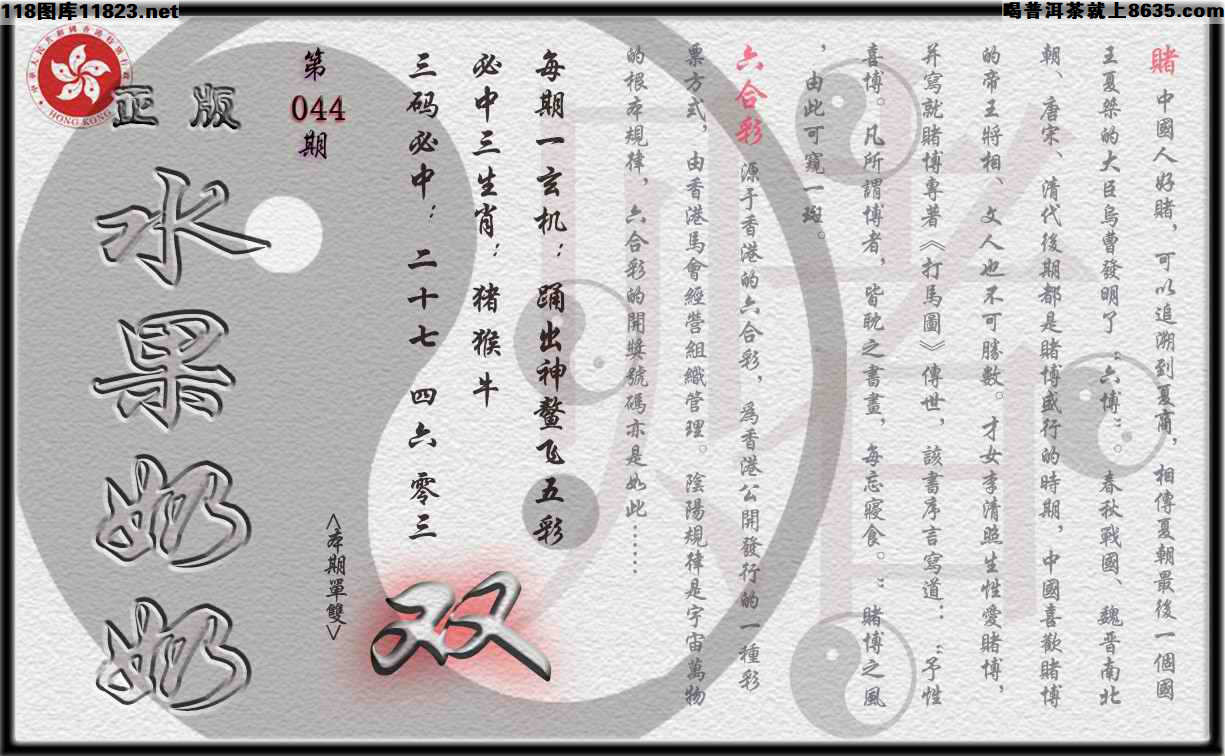 118图库11823.net
喝普洱茶就上8635.com
賭 中國人好賭，可以追溯到夏商，相傳夏朝最後一個國
王夏桀的大臣烏曹發明了“六博”。春秋戰國、魏晋南北
朝、唐宋、清代後期都是賭博盛行的時期，中國喜歡賭博
的帝王將相、文人也不可勝數。才女李清照生性愛賭博，
并寫就賭博專著《打馬圖》傳世，該書序言寫道：“予性
喜博。凡所謂博者，皆耽之書畫，每忘寢食。”賭博之風
，由此可窺一斑。
六合彩 源于香港的六合彩，爲香港公開發行的一種彩
票方式，由香港馬會經營組織管理。陰陽規律是宇宙萬物
的根本規律，六合彩的開獎號碼亦是如此……
每期一玄机：踊出神鳌飞五彩
必中三生肖：猪猴牛
三码必中：二十七 四六 零三
<本期單雙>
双
第
044
期
正版
水果奶奶
HONG KONG